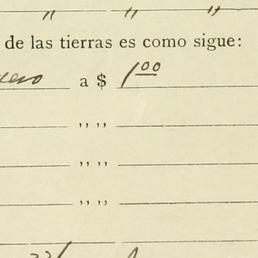 " " "
de las tierras es como sigue:
a $ 1.00
" "
" "
" "